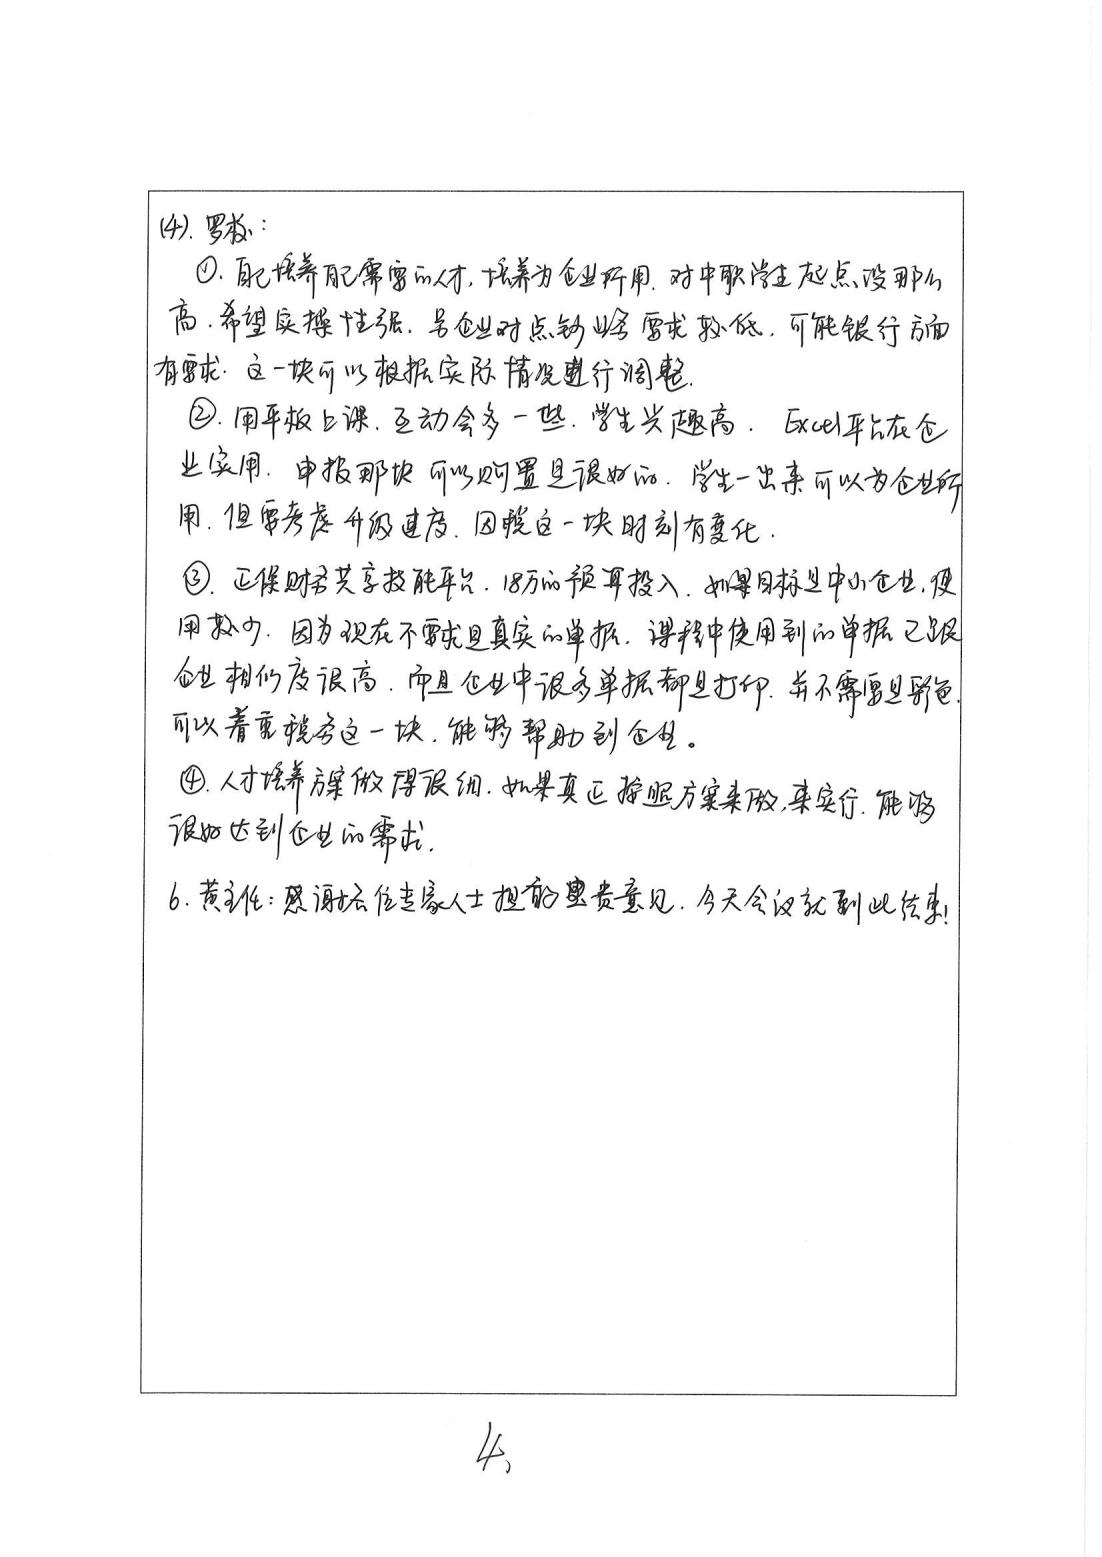 (4). 罗校:
①. 自己培养自己需要的人才, 培养为企业所用. 对中职学生起点没那么
高. 希望实操性强. 另企业对点钞业务要求较低. 可能银行方面
有需求. 这一块可以根据实际情况进行调整.
②. 用平板上课. 互动会多一些. 学生兴趣高. Excel平台在企
业实用. 申报那块可以购置是很好的. 学生一出来可以为企业所
用. 但要考虑升级速度. 因税这一块时刻有变化.
③. 正保财务共享技能平台. 18万的预算投入. 如果目标是中小企业, 使
用较少. 因为现在不需求是真实的单据. 课程中使用到的单据已跟
企业相似度很高. 而且企业中很多单据都是打印. 并不需要是彩色.
可以着重税务这一块. 能够帮助到企业。
④. 人才培养方案做得很细. 如果真正按照方案来做, 来实行. 能够
很好达到企业的需求.
6. 黄主任: 感谢各位专家人士提的宝贵意见. 今天会议就到此结束!
4、